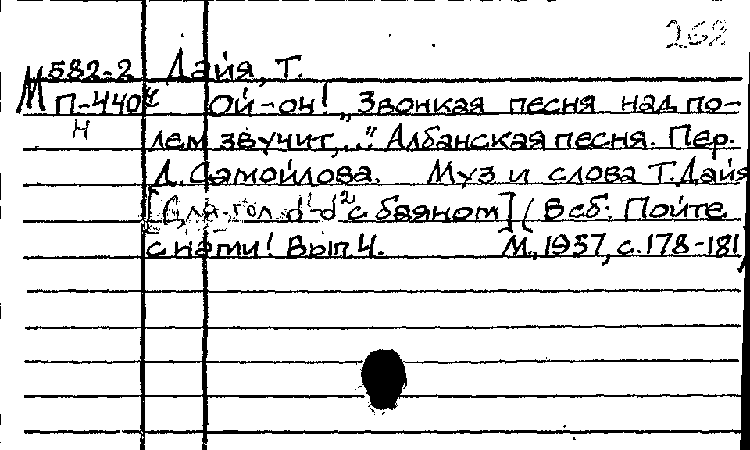 268
М 582-2 Дайя, Т.
П-440 Ой-он! „Звонкая песня над по-
Н лем звучит,..." Албанская песня. Пер.
Д. Самойлова. Муз и слова Т. Дайя
[Для гол. d¹-d² с баяном] (В сб: Пойте
с нами! Вып 4. М, 1957, с. 178-181